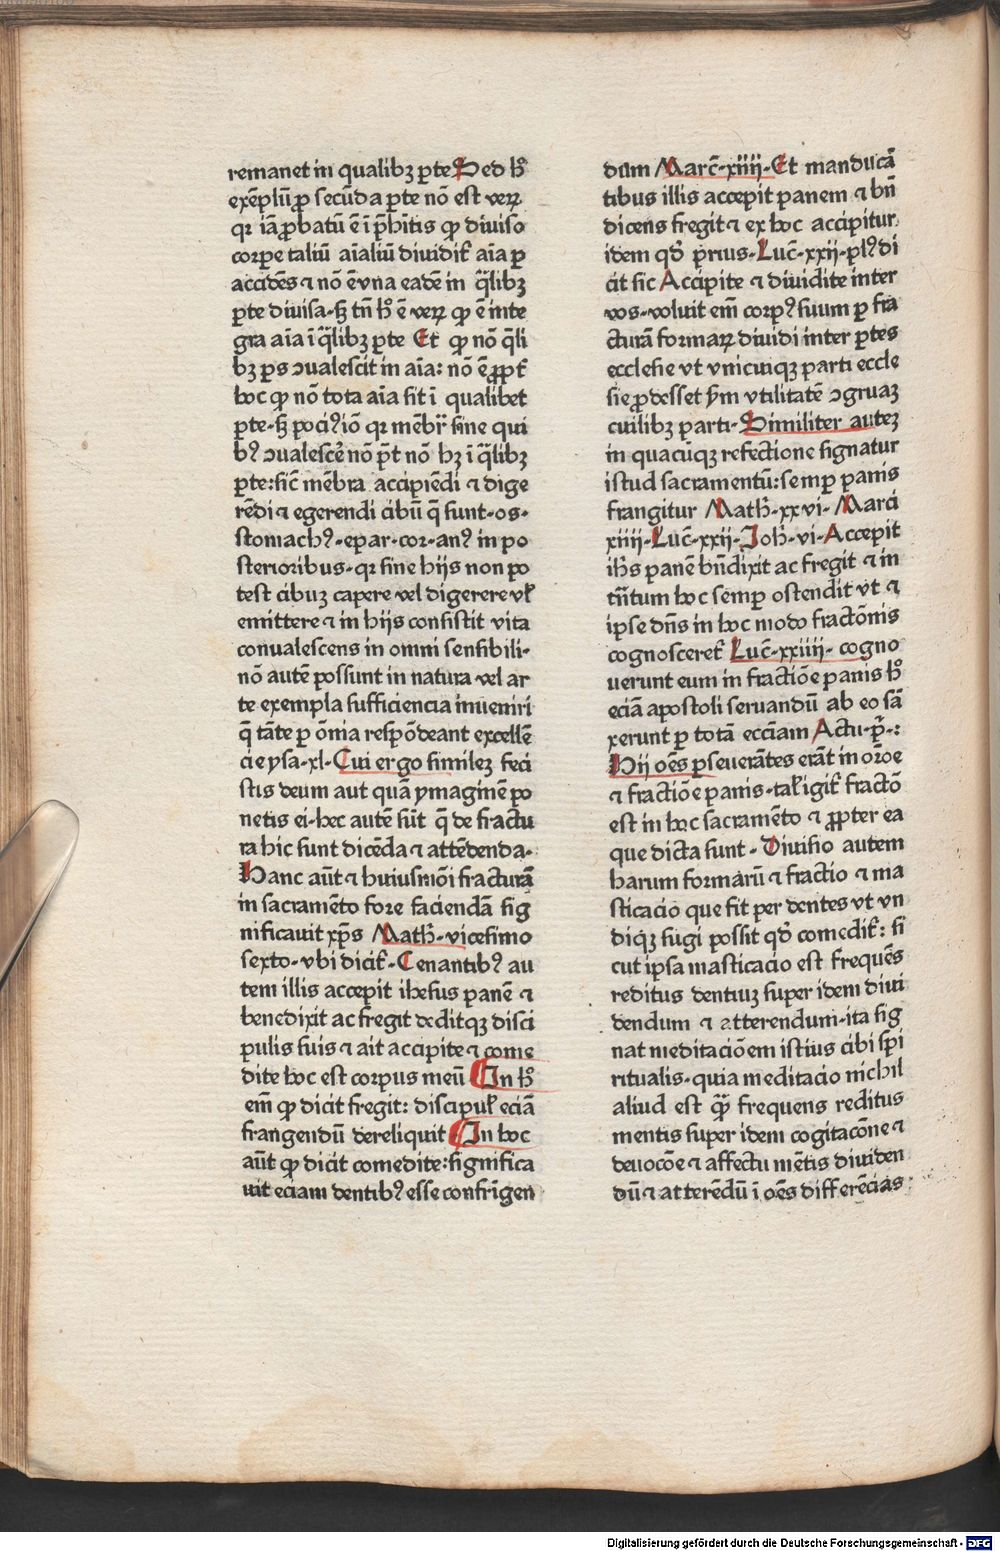 remanet in qualibꝫ ꝑte Sed hͦ
exēplū ꝓ secūda ꝑte nō est veꝝ
qꝛ iā ꝓbatū ē ī p̄hītis ꝙ diuiso
corpe taliū aīaliū diuidit̄ aīa ꝑ
accidēs ⁊ nō ē vna eadē in q̄libꝫ
ꝑte diuisa·sꝫ tn̄ hͦ ē veꝝ ꝙ ē inte
gra aīa ī q̄libꝫ ꝑte Et ꝙ nō q̄li
bꝫ ꝑs ꝯualescit in aīa: nō ē ꝓpt̄
hoc ꝙ nō tota aīa sit ī qualibet
ꝑte·sꝫ poci9 iō qꝛ mēbꝛ̄ sine qui
b9 ꝯualescē nō p̄t nō hꝫ ī q̄libꝫ
ꝑte: sic̄ mēbra accipiēdi ⁊ dige
rēdi ⁊ egerendi cibū q̄ sunt·os·
stomach9·epar·cor·an9 in po
sterioribus·qꝛ sine hijs non po
test cibuꝫ capere vel digerere vl̄
emittere ⁊ in hijs consistit vita
conualescens in omni sensibili·
nō autē possunt in natura vel ar
te exempla sufficiencia inueniri
q̄ tāte ꝑ om̄ia respōdeant excellē
cie ysa·xl·Cui ergo simileꝫ feci
stis deum aut quā ymaginē po
netis ei·hec autē sūt q̄ de fractu
ra hic sunt dicēda ⁊ attēdenda·
Hanc aūt ⁊ huiusmōi fracturā
in sacramēto fore faciendā sig
nificauit xp̄s Math̄·vicesimo
sexto·vbi dicit̄·Cenantib9 au
tem illis accepit ihesus panē ⁊
benedixit ac fregit deditqꝫ disci
pulis suis ⁊ ait accipite ⁊ come
dite hoc est corpus meū In hͦ
em̄ ꝙ dicit fregit: discipul̄ eciā
frangendū dereliquit In hoc
aūt ꝙ dicit comedite: significa
uit eciam dentib9 esse confrīgen
dum Marc̄·xiiij·Et manducā
tibus illis accepit panem ⁊ bn̄
dicens fregit ⁊ ex hoc accipitur
idem qd̄ prius·Luc̄·xxij·pl9 di
cit sic Accipite ⁊ diuidite inter
vos·voluit em̄ corp9 suum ꝑ fra
cturā formaꝝ diuidi inter ꝑtes
ecclesie vt vnicuiqꝫ parti eccle
sie ꝓdesset s̄m vtilitatē ꝯgruaꝫ
cuilibꝫ parti·Similiter auteꝫ
in quacūqꝫ refectione signatur
istud sacramentū: semꝑ panis
frangitur Math̄·xxvi·Marci
xiiij·Luc̄·xxij·Joh̄·vi·Accepit
ih̄s panē bn̄dixit ac fregit ⁊ in
tn̄tum hoc semꝑ ostendit vt ⁊
ipse dn̄s in hoc modo fractōnis
cognosceret̄ Luc̄·xxiiij·cogno
uerunt eum in fractiōe panis hͦ
eciā apostoli seruandū ab eo sā
xerunt ꝑ totā ecciam Actu·pꝛ̄·:
Hij oēs ꝑseuerātes erāt in orōe
⁊ fractiōe panis·tal̄ igit̄ fractō
est in hoc sacramēto ⁊ ꝓpter ea
que dicta sunt·Diuisio autem
harum formarū ⁊ fractio ⁊ ma
sticacio que fit per dentes vt vn
diqꝫ sugi possit qd̄ comedit̄: si
cut ipsa masticacio est frequēs
reditus dentiuꝫ super idem diui
dendum ⁊ atterendum·ita sig
nat meditaciōem istius cibi spi
ritualis·quia meditacio nichil
aliud est qꝫ̄ frequens reditus
mentis super idem cogitacōne ⁊
deuocōe ⁊ affectu mētis diuiden
dū ⁊ atterēdū ī oēs differēcias·
Digitalisierung gefördert durch die Deutsche Forschungsgemeinschaft - DFG